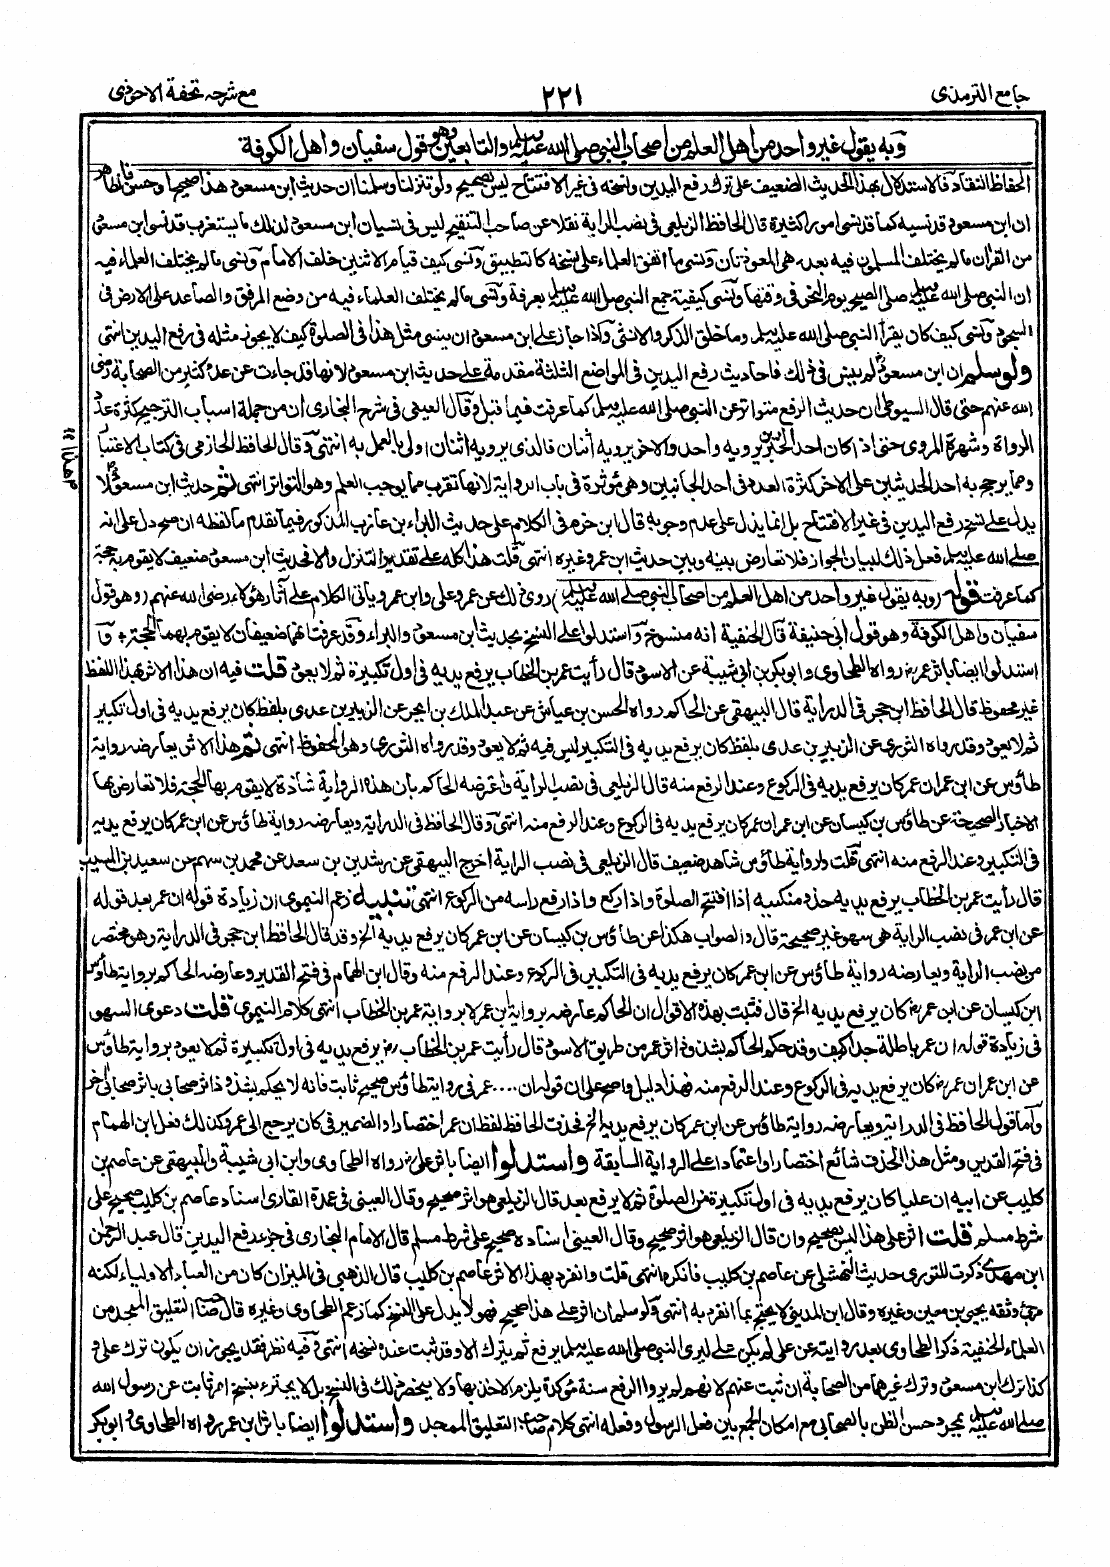 جامع الترمذى
٢٢١
مع شرحه تحفة الاحوذى
وبه يقول غير واحد من اهل العلم من اصحاب النبى صلى الله عليه وسلم والتابعين وهو قول سفيان واهل الكوفة
الحفاظ النقاد فالاستدلال بهذا الحديث الضعيف على ترك رفع اليدين ونسخه فى غير الافتتاح ليس بصحيح ولو تنزلنا وسلمنا ان حديث ابن مسعود هذا صحيح او حسن فالظاهر
ان ابن مسعود قد نسيه كما قد نسى امورا كثيرة قال الحافظ الزيلعى فى نصب الراية نقلا عن صاحب التنقيح ليس فى نسيان ابن مسعود لذلك ما يستغرب قد نسى ابن مسعود
من القرآن ما لم يختلف المسلمون فيه بعد وهى المعوذتان ونسى ما اتفق العلماء على نسخه كالتطبيق ونسى كيف قيام الاثنين خلف الامام ونسى ما لم يختلف العلماء فيه
ان النبى صلى الله عليه وسلم صلى الصبح يوم النحر فى وقتها ونسى كيفية جمع النبى صلى الله عليه وسلم بعرفة ونسى ما لم يختلف العلماء فيه من وضع المرفق والساعد على الارض فى
السجود ونسى كيف كان يقرأ النبى صلى الله عليه وسلم وما خلق الذكر والانثى واذا جاز على ابن مسعود ان ينسى مثل هذا فى الصلوة كيف لا يجوز مثله فى رفع اليدين انتهى
ولو سلم ان ابن مسعود لم ينس فى ذلك فاحاديث رفع اليدين فى المواضع الثلثة مقدمة على حديث ابن مسعود لانها قد جاءت عن عدد كثير من الصحابة رضى
الله عنهم حتى قال السيوطى ان حديث الرفع متواتر عن النبى صلى الله عليه وسلم كما عرفت فيما قبل وقال العينى فى شرح البخارى ان من جملة اسباب الترجيح كثرة عدد
الرواة وشهرة المروى حتى اذا كان احد الخبرين يرويه واحد والاخر يرويه اثنان فالذى يرويه اثنان اولى بالعمل به انتهى وقال الحافظ الحازمى فى كتاب الاعتبار
ومما يرجح به احد الحديثين على الاخر كثرة العدد فى احد الجانبين وهى مؤثرة فى باب الرواية لانها تقرب مما يوجب العلم وهو التواتر انتهى ثم حديث ابن مسعود لا
يدل على نسخ رفع اليدين فى غير الافتتاح بل انما يدل على عدم وجوبه قال ابن حزم فى الكلام على حديث البراء بن عازب المذكور فيما تقدم ما لفظه ان صح دل على انه
صلى الله عليه وسلم فعل ذلك لبيان الجواز فلا تعارض بينه وبين حديث ابن عمر وغيره انتهى قلت هذا كله على تقدير التنزل والا فحديث ابن مسعود ضعيف لا يقوم به حجة
كما عرفت قوله (وبه يقول غير واحد من اهل العلم من اصحاب النبى صلى الله عليه وسلم) روى ذلك عن عمر وعلى وابن عمر ويأتى الكلام على آثار هؤلاء رضى الله عنهم (وهو قول
سفيان واهل الكوفة) وهو قول ابى حنيفة قال الحنفية انه منسوخ واستدلوا على النسخ بحديث ابن مسعود والبراء وقد عرفت انهما ضعيفان لا يقوم بهما الحجة + وقد
استدلوا ايضا باثر عمر رواه الطحاوى وابوبكر بن ابى شيبة عن الاسود قال رأيت عمر بن الخطاب يرفع يديه فى اول تكبيرة ثم لا يعود قلت فيه ان هذا الاثر بهذا اللفظ
غير محفوظ قال الحافظ ابن حجر فى الدراية قال البيهقى عن الحاكم رواه الحسن بن عياش عن عبد الملك بن ابجر عن الزبير بن عدى بلفظ كان يرفع يديه فى اول تكبير
ثم لا يعود وقد رواه الثورى عن الزبير بن عدى بلفظ كان يرفع يديه فى التكبير ليس فيه ثم لا يعود وقد رواه الثورى وهو المحفوظ انتهى ثم هذا الاثر يعارضه رواية
طاؤس عن ابن عمر ان عمر كان يرفع يديه فى الركوع وعند الرفع منه قال الزيلعى فى نصب الراية واعترضه الحاكم بان هذه الرواية شاذة لا يقوم بها الحجة فلا تعارض بها
الاخبار الصحيحة عن طاؤس بن كيسان عن ابن عمر ان عمر كان يرفع يديه فى الركوع وعند الرفع منه انتهى وقال الحافظ فى الدراية ويعارضه رواية طاؤس عن ابن عمر كان يرفع يديه
فى التكبير وعند الرفع منه انتهى قلت ولرواية طاؤس شاهد ضعيف قال الزيلعى فى نصب الراية اخرج البيهقى عن رشدين بن سعد عن محمد بن سهم عن سعيد بن المسيب
قال رأيت عمر بن الخطاب يرفع يديه حذو منكبيه اذا افتتح الصلوة واذا ركع واذا رفع راسه من الركوع انتهى تنبيه زعم النيموى ان زيادة قوله ان عمر بعد قوله
عن ابن عمر فى نصب الراية هى سهو غير صحيحة قال والصواب هكذا عن طاؤس بن كيسان عن ابن عمر كان يرفع يديه الخ وقد قال الحافظ ابن حجر فى الدراية وهو مختصر
من نصب الراية ويعارضه رواية طاؤس عن ابن عمر كان يرفع يديه فى التكبير فى الركوع وعند الرفع منه وقال ابن الهمام فى فتح القدير وعارضه الحاكم برواية طاؤس
ابن كيسان عن ابن عمر كان يرفع يديه الخ قال فثبت بهذه الاقوال ان الحاكم عارضه برواية ابن عمر لا برواية عمر بن الخطاب انتهى كلام النيموى قلت دعوى السهو
فى زيادة قوله ان عمر باطلة جدا كيف وقد حكم الحاكم بشذوذ اثر عمر من طريق الاسود قال رأيت عمر بن الخطاب يرفع يديه فى اول تكبيرة ثم لا يعود برواية طاؤس
عن ابن عمر ان عمر كان يرفع يديه فى الركوع وعند الرفع منه فهذا دليل واضح على ان قوله ان .... عمر فى رواية طاؤس صحيح ثابت فانه لا يحكم بشذوذ اثر صحابى باثر صحابى اخر
واما قول الحافظ فى الدراية ويعارضه رواية طاؤس عن ابن عمر كان يرفع يديه الخ فحذف الحافظ لفظ ان عمر اختصارا والضمير فى كان يرجع الى عمر وكذلك فعل ابن الهمام
فى فتح القدير ومثل هذا الحذف شائع اختصارا واعتمادا على الرواية السابقة واستدلوا ايضا باثر على رواه الطحاوى وابن ابى شيبة والبيهقى عن عاصم بن
كليب عن ابيه ان عليا كان يرفع يديه فى اول تكبيرة من الصلوة ثم لا يرفع بعد قال الزيلعى هو اثر صحيح وقال العينى فى عمدة القارى اسناد عاصم بن كليب صحيح على
شرط مسلم قلت اثر على هذا ليس بصحيح وان قال الزيلعى هو اثر صحيح وقال العينى اسناده صحيح على شرط مسلم قال الامام البخارى فى جزء رفع اليدين قال عبد الرحمن
ابن مهدى ذكرت للثورى حديث النهشلى عن عاصم بن كليب فانكره انتهى قلت وانفرد بهذا الاثر عاصم بن كليب قال الذهبى فى الميزان كان من العباد الاولياء لكنه
مرجئ وثقه يحيى بن معين وغيره وقال ابن المدينى لا يحتج بما انفرد به انتهى ولو سلم ان اثر على هذا صحيح فهو لا يدل على النسخ كما زعم الطحاوى وغيره قال صاحب التعليق الممجد من
العلماء الحنفية ذكر الطحاوى بعد روايته عن على لم يكن على ليرى النبى صلى الله عليه وسلم يرفع ثم يترك الا وقد ثبت عنده نسخه انتهى وفيه نظر فقد يجوز ان يكون ترك على و
كذا ترك ابن مسعود وترك غيرهما من الصحابة ان ثبت عنهم لانهم لم يروا الرفع سنة مؤكدة يلزم الاخذ بها ولا ينحصر ذلك فى النسخ بل لا يجترء بنسخ امر ثابت عن رسول الله
صلى الله عليه وسلم بمجرد حسن الظن بالصحابى مع امكان الجمع بين فعل الرسول وفعله انتهى كلام صاحب التعليق الممجد واستدلوا ايضا باثر ابن عمر رواه الطحاوى وابوبكر